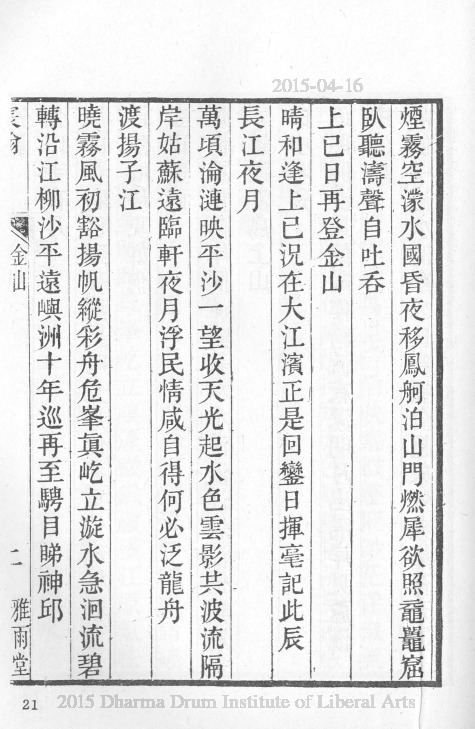 2015-04-16
煙霧空濛水國昏夜移鳳舸泊山門燃犀欲照黿鼉窟
臥聽濤聲自吐呑
上巳日再登金山
晴和逢上巳況在大江濱正是回鑾日揮毫記此辰
長江夜月
萬頃淪漣映平沙一望收天光起水色雲影共波流隔
岸姑蘇遠臨軒夜月浮民情咸自得何必泛龍舟
渡揚子江
曉霧風初豁揚帆縱彩舟危峯眞屹立漩水急洄流碧
轉沿江柳沙平遠嶼洲十年巡再至騁目睇神邱
金山
二
雅雨堂
21
2015 Dharma Drum Institute of Liberal Arts